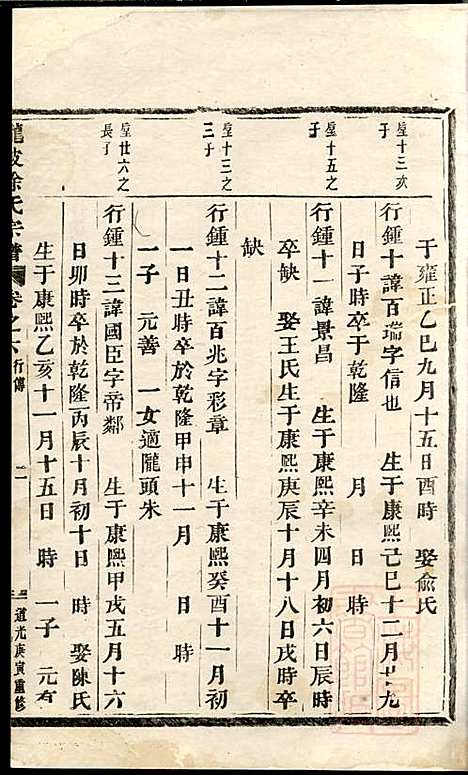 于雍正乙巳九月十五日酉時 娶俞氏
星十三次子
行鍾十諱百瑞字信也 生于康熙己巳十二月廿九
日子時卒于乾隆 月 日 時
星十五之子
行鍾十一諱景昌 生于康熙辛未四月初六日辰時
卒缺 娶王氏生于康熙庚辰十月十八日戌時卒
缺
星十三之三子
行鍾十二諱百兆字彩章 生于康熙癸酉十一月初
一日丑時卒於乾隆甲申十一月 日 時
一子 元善 一女適隴頭朱
星廿六之長子
行鍾十三諱國臣字帝鄰 生于康熙甲戌五月十六
日卯時卒於乾隆丙辰十月初十日 時 娶陳氏
生于康熙乙亥十一月十五日 時 一子 元有
龍坡徐氏宗譜 卷之六 行傳 二 道光庚寅重修